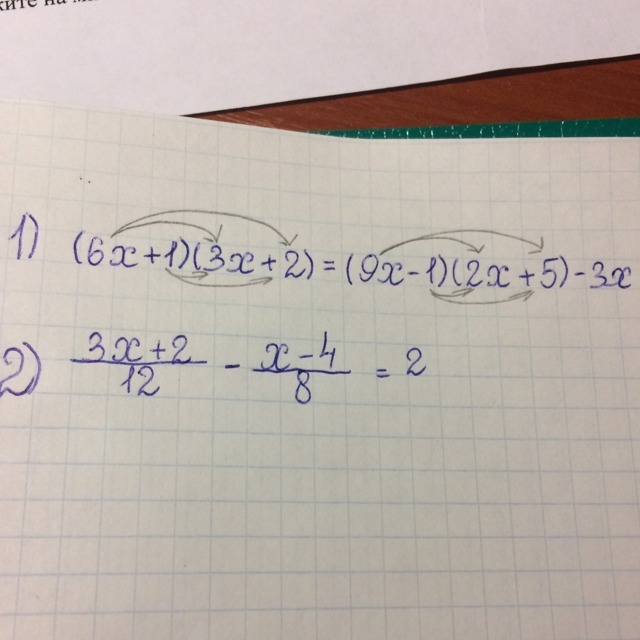 ките на м
1) (6x+1)(3x+2)=(9x-1)(2x+5)-3x
2) \frac{3x+2}{12} - \frac{x-4}{8} = 2